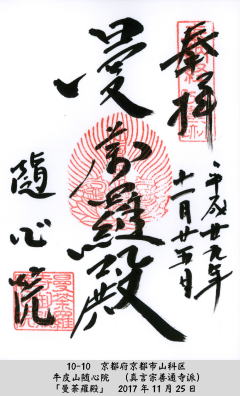 奉拝
平成廿九年
十一月廿五日
曼荼羅殿
随心院
10-10 京都府京都市山科区
牛皮山随心院 (真言宗善通寺派)
「曼荼羅殿」 2017年11月25日